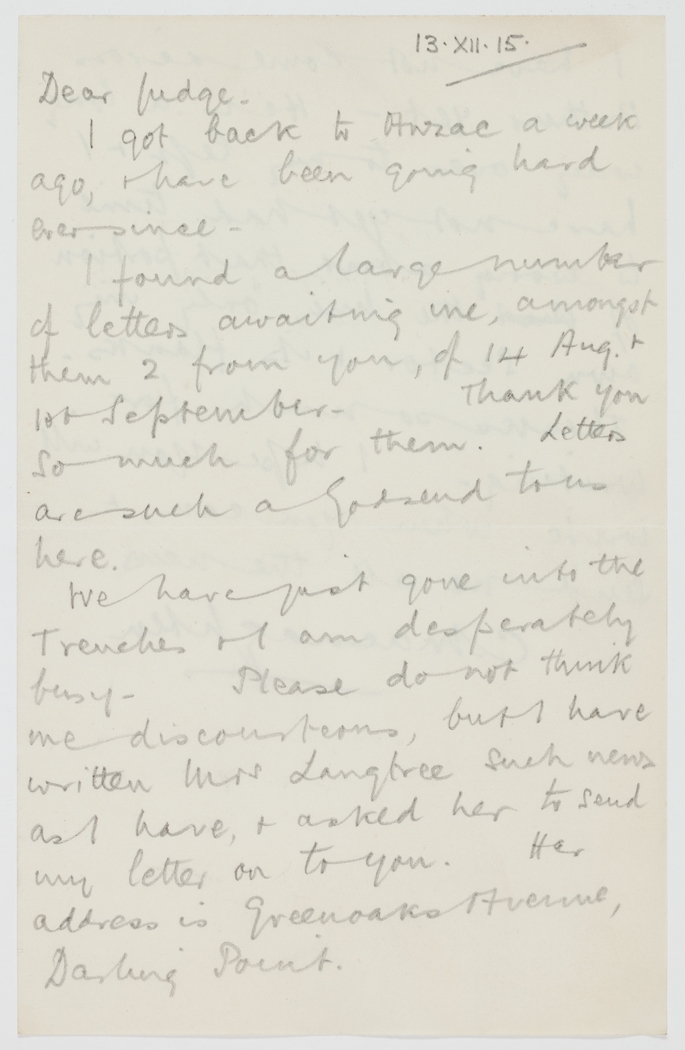 13.XII.15.
Dear Judge.
I got back to Anzac a week
ago, & have been going hard
ever since -
I found a large number
of letters awaiting me, amongst
them 2 from you, of 14 Aug. &
1st September - Thank you
so much for them. Letters
are such a Godsend to us
here.
We have just gone into the
Trenches & I am desperately
busy - Please do not think
me discourteous, but I have
written Mrs Langtree such news
as I have, & asked her to send
my letter on to you. Her
address is Greenoaks Avenue,
Darling Point.